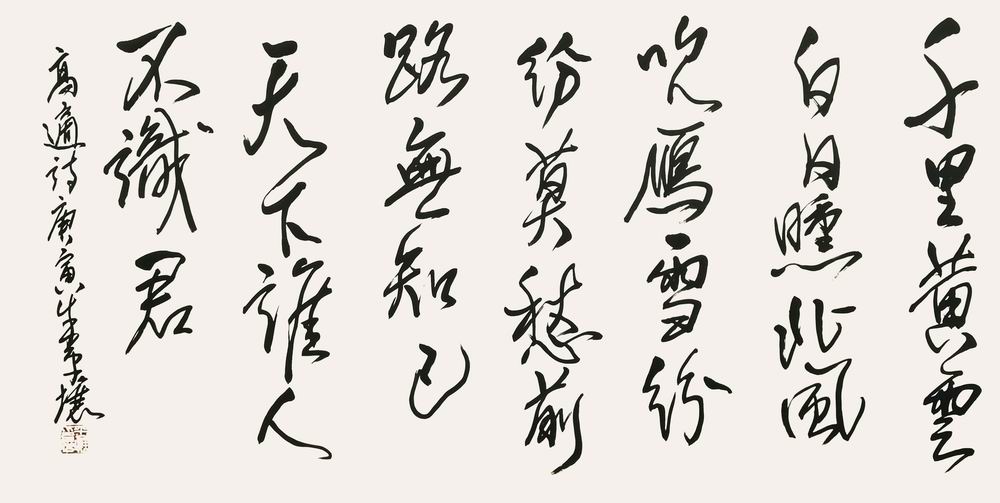 千里黄雲
白日曛北風
吹雁雪紛
紛莫愁前
路無知己
天下誰人
不識君
高適詩庚寅年